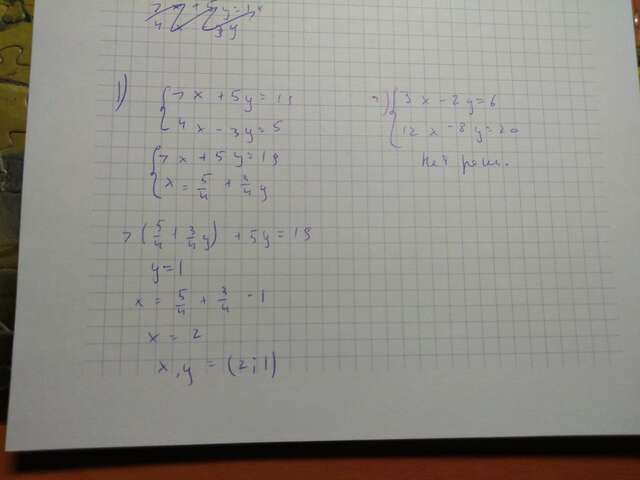 1)
7x + 5y = 19
4x - 3y = 5
7x + 5y = 19
x = 5/4 + 3/4 y
7(5/4 + 3/4 y) + 5y = 19
y = 1
x = 5/4 + 3/4 · 1
x = 2
x, y = (2; 1)
3x - 2y = 6
12x - 8y = 20
Нет реш.